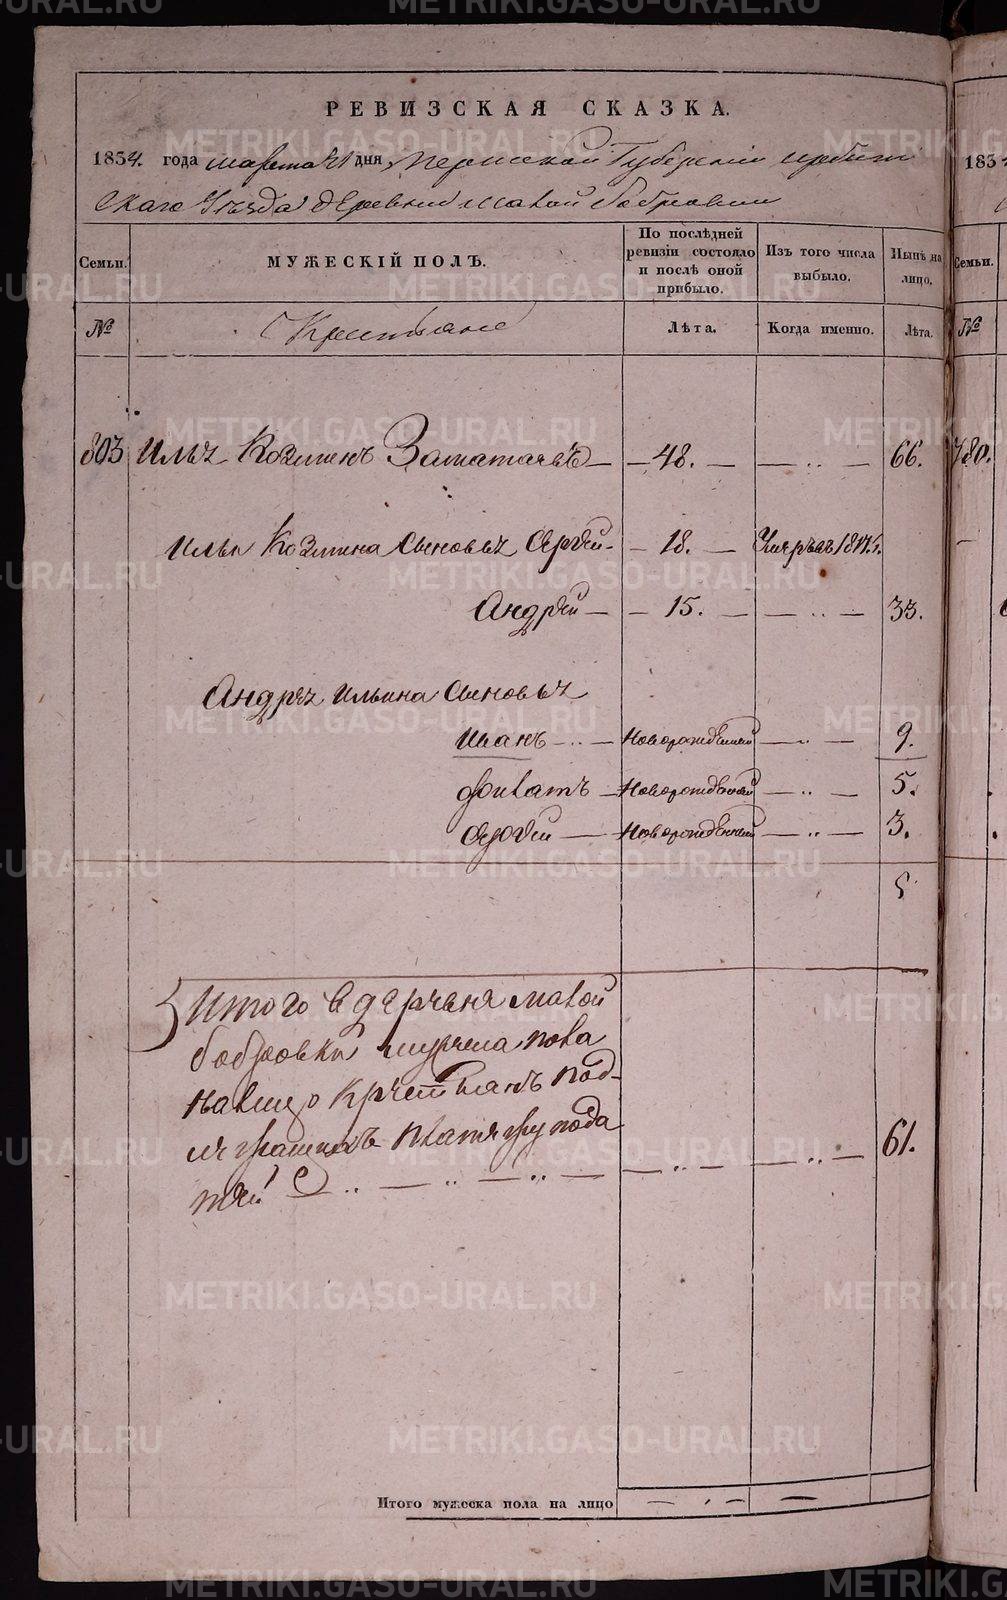 РЕВИЗСКАЯ СКАЗКА.
1834. года марта 21 дня, Пермской Губернии ирбит
скаго Уезда деревни малой бобровки
Семьи.
МУЖЕСКІЙ ПОЛЪ.
По послѣдней ревизіи состояло и послѣ оной прибыло.
Изъ того числа выбыло.
Нынѣ на лицо.
Семьи.
№
Крестьяне
Лѣта.
Когда именно.
Лѣта.
№
803 Илья Козминъ — 48. — — „ — 66. 780.
Ильи Козмина сыновья Сергей - — 18. — Умеръ въ
Андрей — — 15. — — „ — 33.
Андрея Ильина сыновья
Иванъ — „ — Новорожденный — „ — 9.
Филатъ — Новорожденный — „ — 5.
Новорожденный — „ — 3.
5
Итого в деревне малой
бобровки мужеска пола
налицо крестьянъ под
податей — „ — „ — „ — — „ — — „ — 61.
Итого мужеска пола на лицо
METRIKI.GASO-URAL.RU